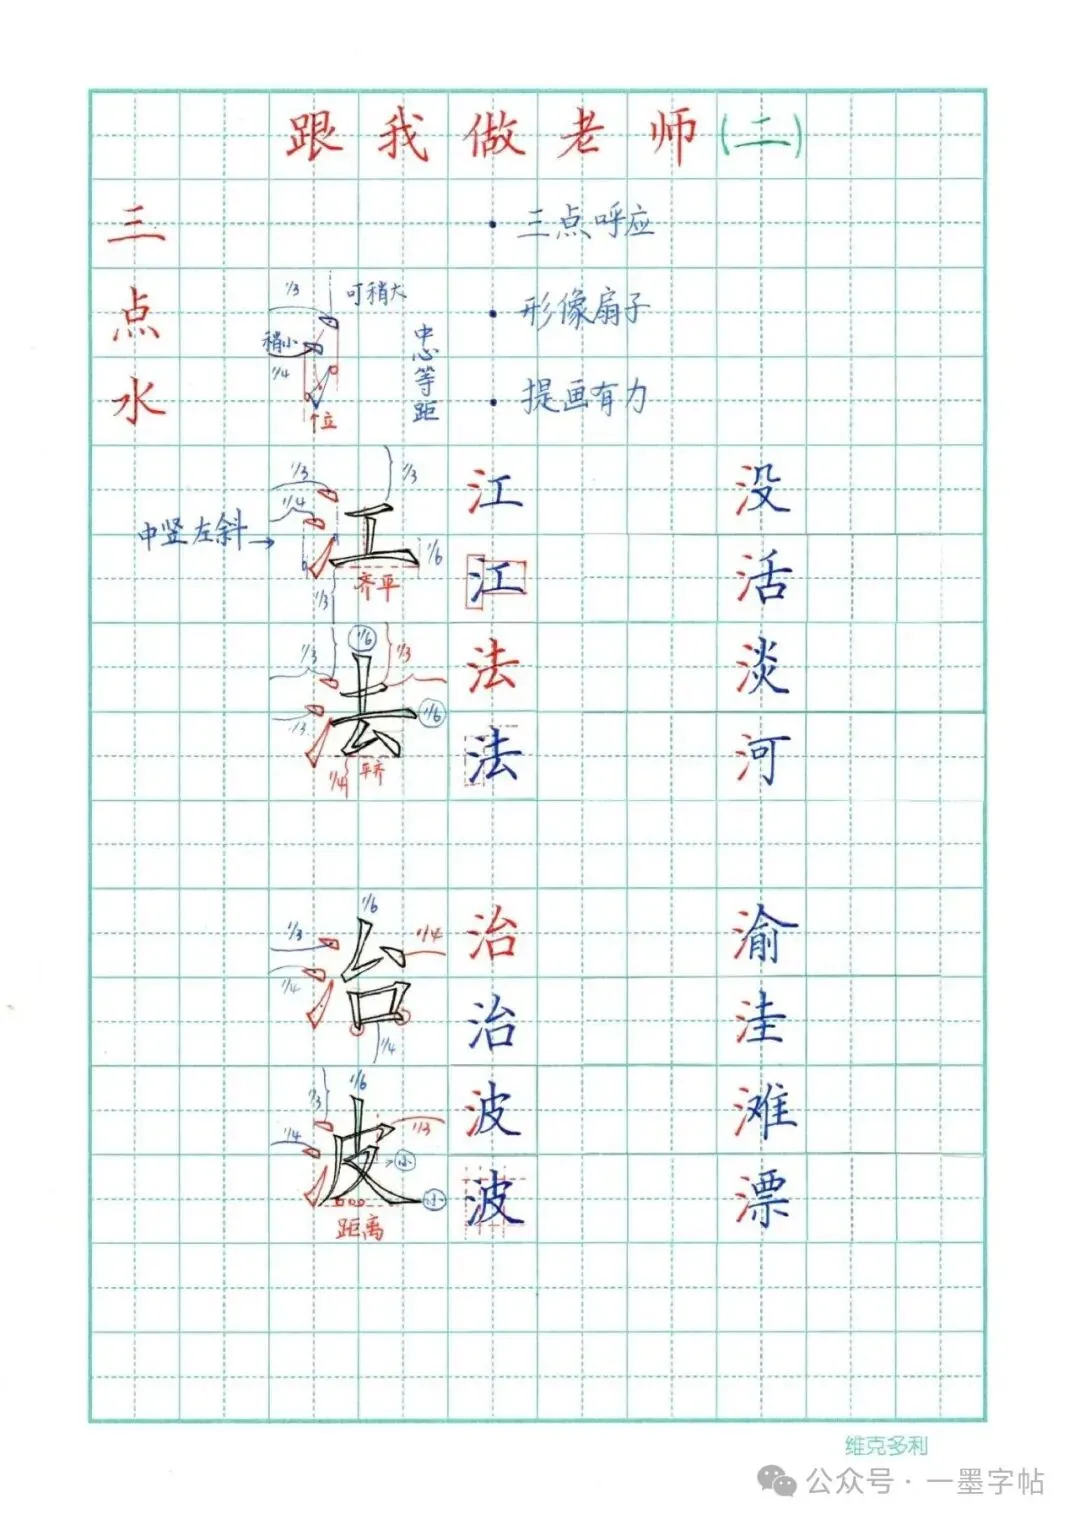 跟我做老师(二)
三点水
三点呼应
形像扇子
提画有力
1/3
可稍大
稍小
1/4
中心等距
个位
1/3
1/3
1/4
中竖左斜
1/6
齐平
1/3
江
没
江
活
1/6
1/3
1/3
1/6
1/3
平齐
1/4
法
淡
法
河
1/6
1/3
1/4
1/4
1/4
治
渝
治
洼
1/6
1/3
1/4
1/3
小
小
距离
波
滩
波
漂
维克多利
公众号·一墨字帖